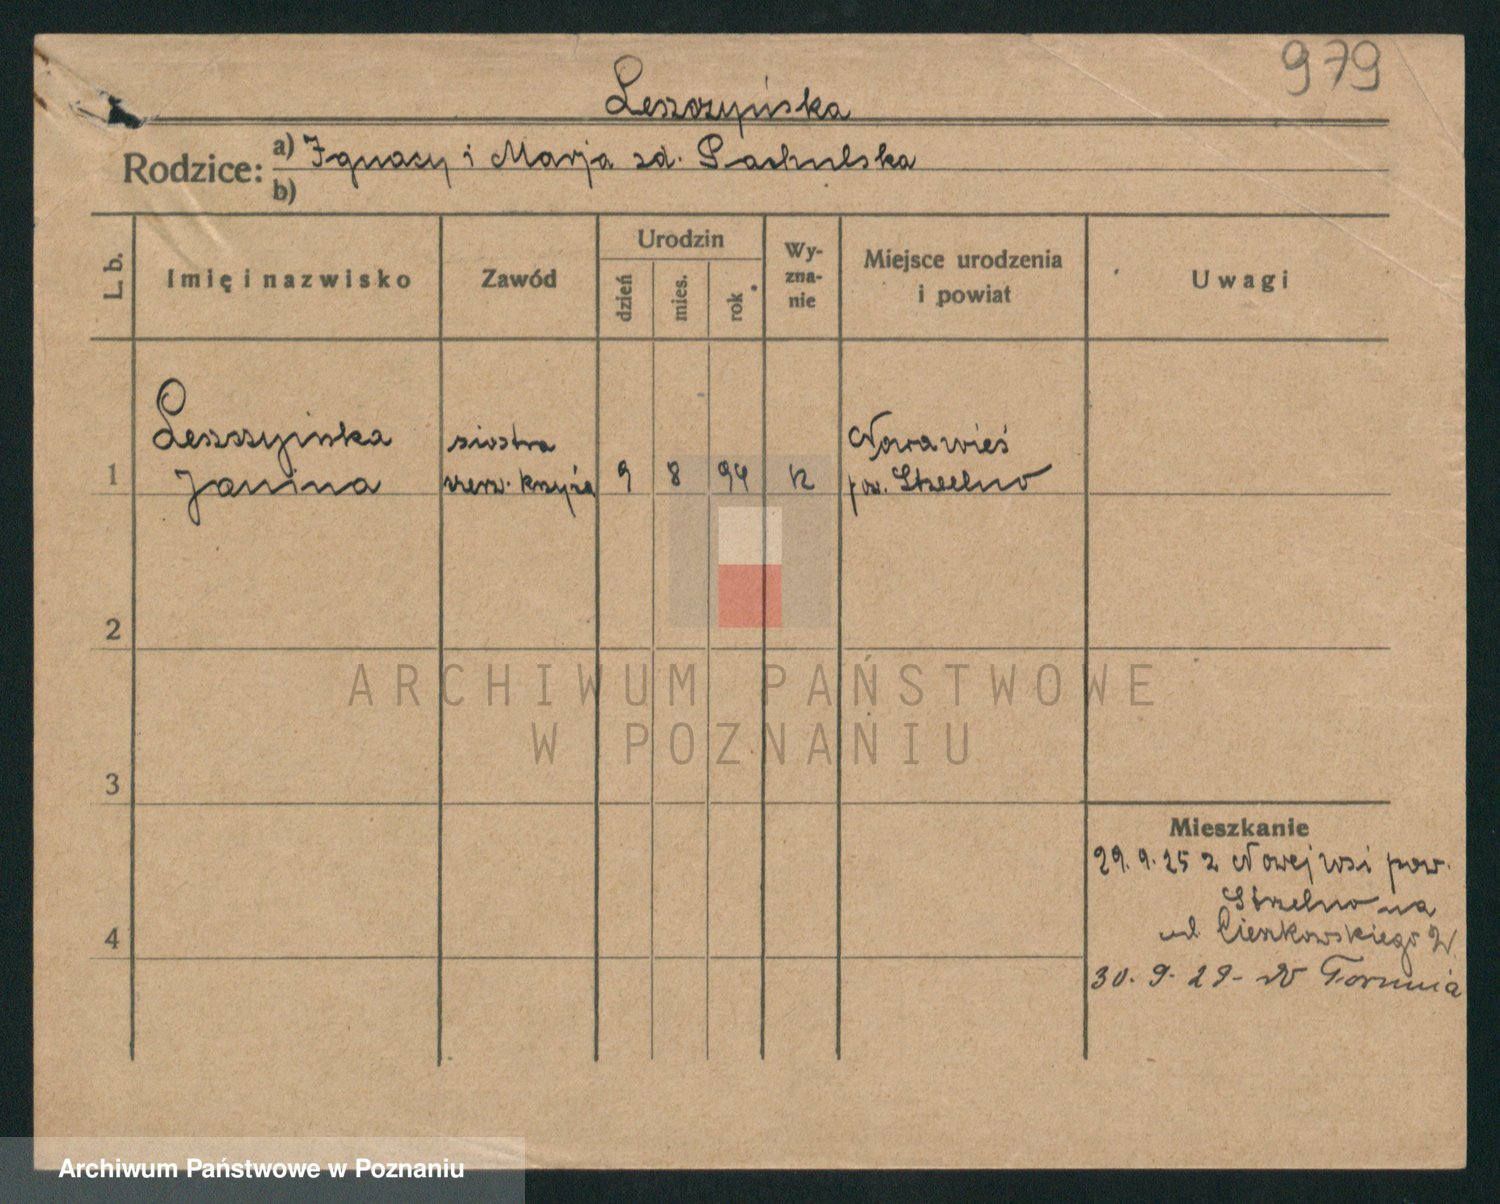 979
Leszczyńska
Rodzice: a) Ignacy i Marja zd. Pachulska
b)
L. b. Imię i nazwisko Zawód Urodzin dzień mies. rok Wy-zna-nie Miejsce urodzenia i powiat Uwagi
Leszczyńska siostra Nowawieś
1 Janina czerw. krzyża 9 8 94 k pow. Strzelno
2
ARCHIWUM PAŃSTWOWE
W POZNANIU
3
Mieszkanie
29. 9. 25 z Nowej wsi pow.
Strzelno na
4
ul Cieszkowskiego
30. 9. 29 - Torunia
Archiwum Państwowe w Poznaniu